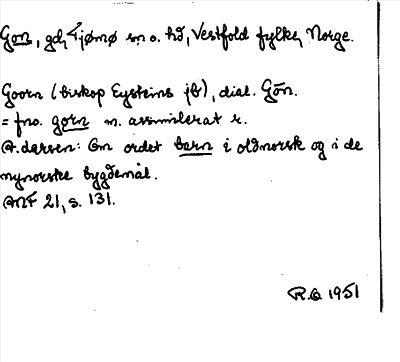 Gon, gd, Tjømø sn o. hd, Vestfold fylke, Norge.
Goorn (biskop Eysteins jb), dial. Gōn.
= fno. gorn m. assimilerat r.
A. Larsen: Om ordet barn i oldnorsk og i de
nynorske bygdemål.
ANF 21, s. 131.
R.O. 1951